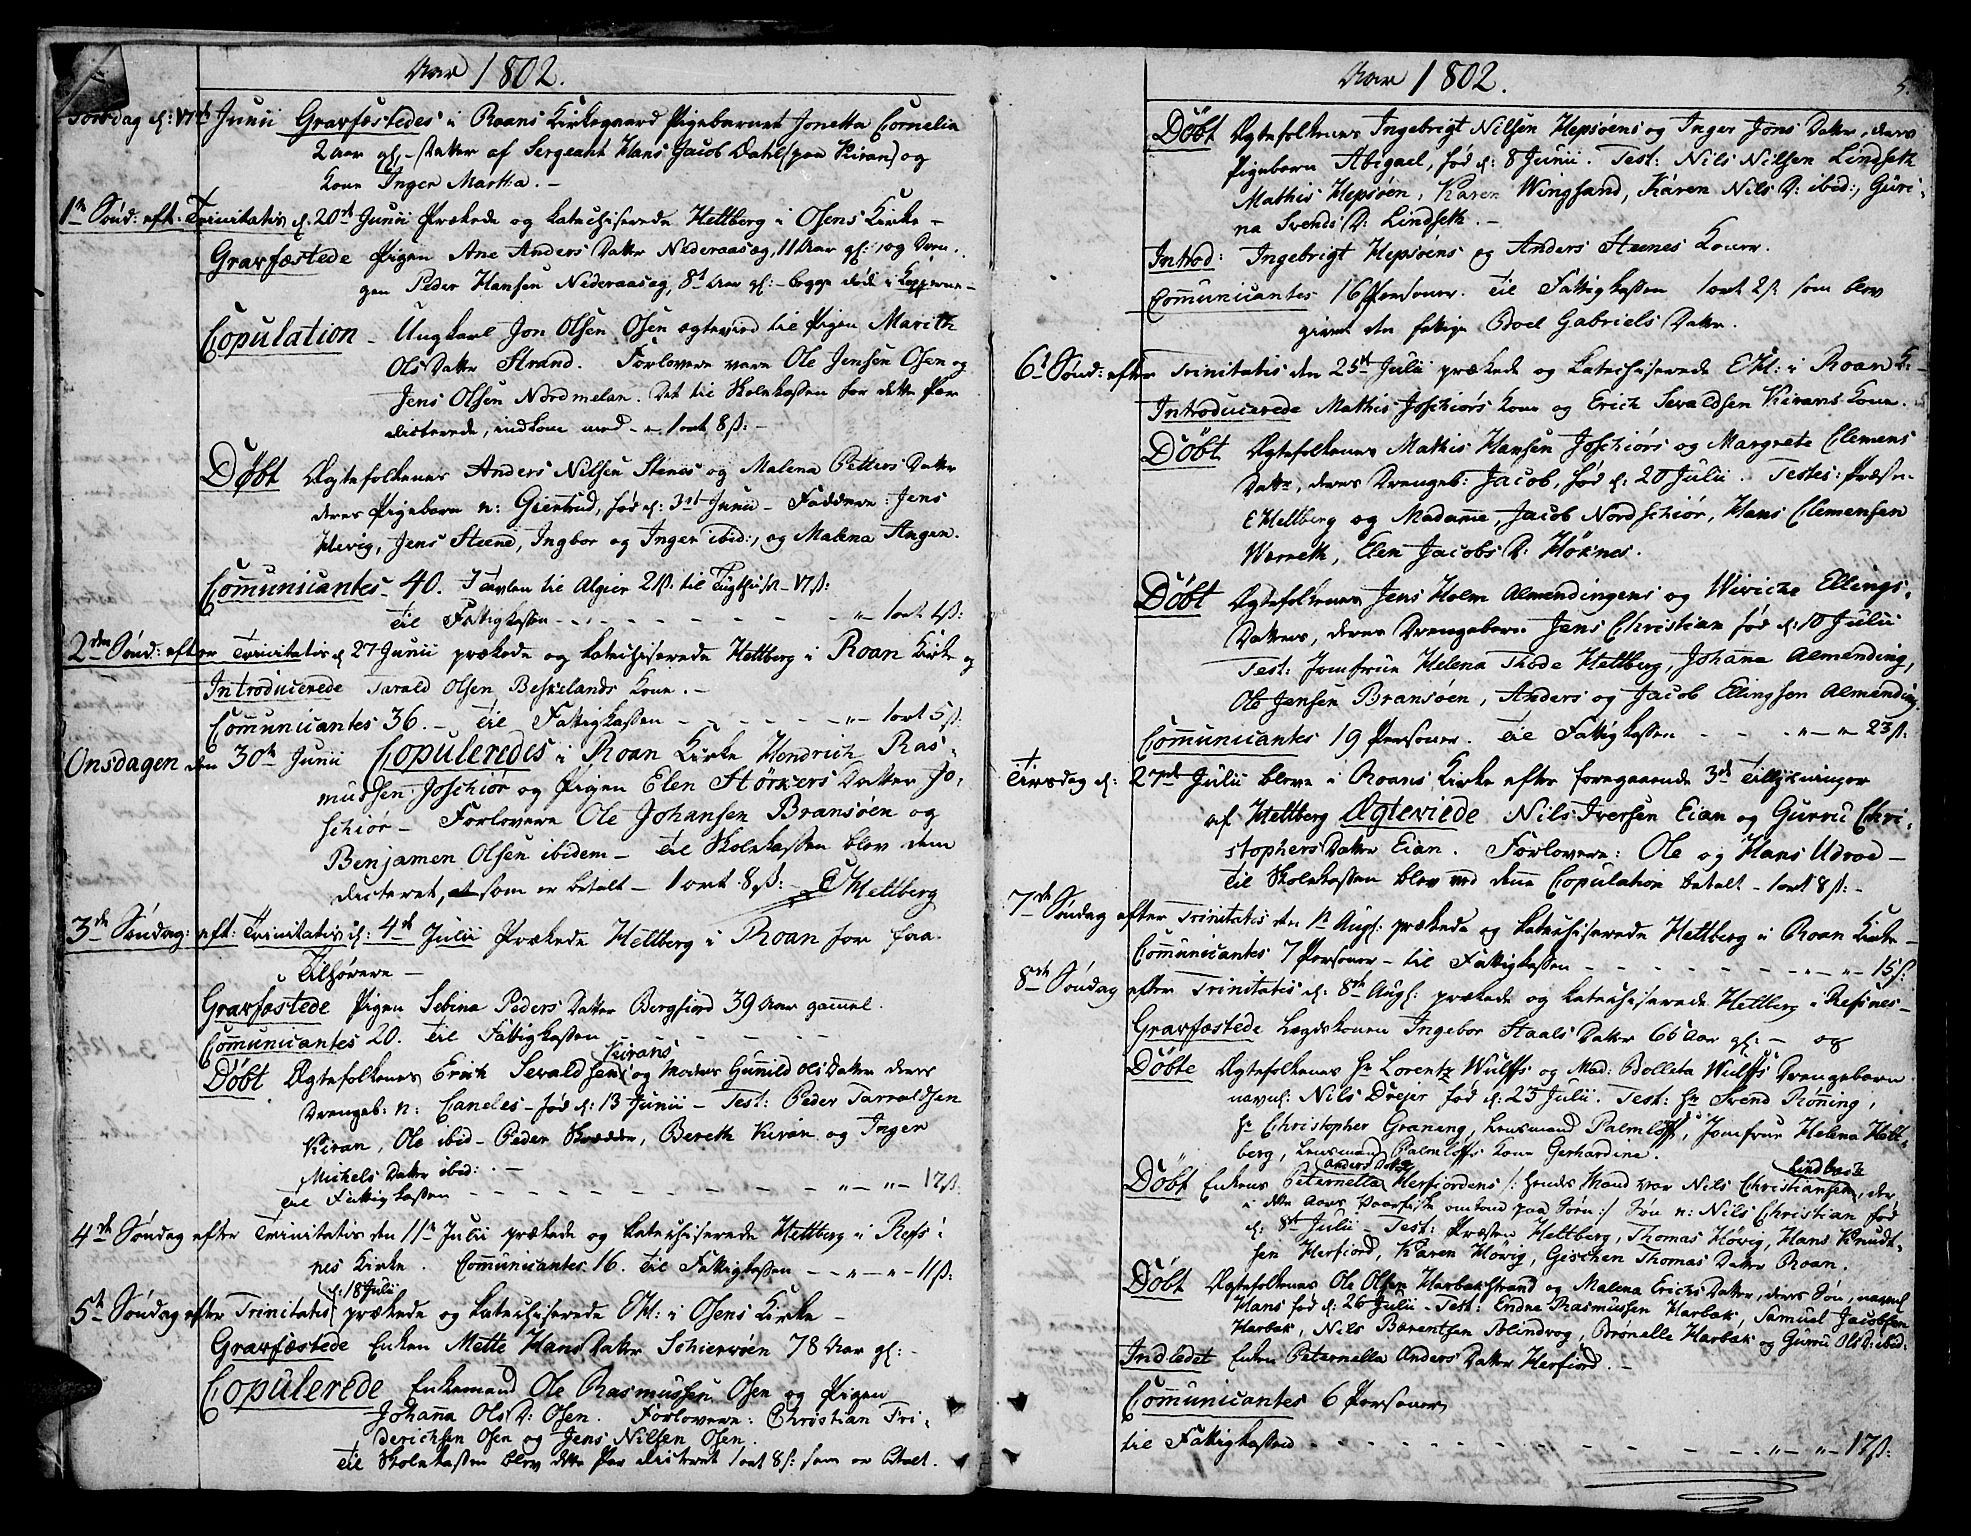 Aar 1802.
Torsdag d: 17d Junii Gravfæstedes i Roans Kirkegaard Pigebarnet Jonetta Cornelia
2 Aar gl, - Datter af Sergeant Hans Jacob Dahl (paa Kiran) og
Kone Inger Martha. -
1te Sönd: eft: Trinitatis d. 20de Junii Prækede og Catechiserede Hettberg i Osens Kirke -
Gravfæstede Pigen Ane Anders Datter Nederaasæg, 11 Aar gl: og Dren-
gen Peder Hansen Nederaasæg, 8te Aar gl: - begge døde i Kopperne -
Copulation - Ungkarl Jon Olsen Osen egtevied til Pigen Marith
Ols Datter Strand. Forlovere vare Ole Jensen Osen og
Jens Olsen Nordmelan. Det til Skolekassen for dette Par
dicterede, indkom med - " 1 ort 8 s: -
Döbt Ægtefolkenes Anders Nilsen Stenes og Malena Petters Datter
deres Pigebarn n: Giertrud, fød d: 3de Junii - Faddere: Jens
Hevig, Jens Steene, Ingbor og Inger ibid:, og Malena Angen.
Communicantes - 40. Tavlen til Algier 2 s. til Tugthuset 17 s:
Til Fattigkassen - - - - - - " 1 ort 4 s:
2den Sönd: efter Trinitatis d. 27 Junii prækede og Catechiserede Hettberg i Roan Kirke og
Introducerede Tarald Olsen Beskelands Kone. -
Communicantes 36. - Til Fattigkassen - - - - - " - 1 ort 5 s.
Onsdagen den 30te Junii Copuleredes i Roan Kirke Hendrich Ras-
mussen Joschiör og Pigen Elen Störkers Datter Jo-
schiör - Forlovere Ole Johansen Bransöen og
Benjamen Olsen ibidem - Til Skolekassen blev dem
dicteret, som er betalt - 1 ort 8 s: - EHettberg
3de Söndag: eft: Trinitatis d: 4de Julii Prækede Hettberg i Roan for faa
Tilhörere -
Gravfæstede Pigen Sebina Peders Datter Bergfiord 39 Aar gammel.
Communicantes 20. Til Fattigkassen - - - -
Kirans
Döbt Ægtefolkenes Erich Sevaldsen og Moder Gunild Ols Datter deres
Drengeb: n: Caneles - fød d: 13 Junii - Test: Peder Tarraldsen
Kiran, Ole ibid - Peder Skrædder, Bereth Kiran og Inger
Michels Datter ibid: . -
Til Fattigkassen - - - - - - - - " - " - 17 s.
4de Söndag efter Trinitatis den 11te Julii prækede og Catechiserede Hettberg i Refs-
nes Kirke. Communicantes 16. Til Fattigkassen - - " - " - 11 s:
d: 18 Julii
5te Söndag efter Trinitatis prækede og Catechiserede EH: i Osens Kirke -
Gravfæstede Enken Mette Hans Datter Schiervöen 78 Aar gl: -
Copulerede Enkemand Ole Rasmussen Osen og Pigen
Johanna Ols D: Osen. Forlovere: Christian Fri-
derichsen Osen og Jens Nilsen Osen.
Til Skolekassen blev dette Par dicteret 1 ort 8 s: som er betalt.
Aar 1802.
5.
Döbt Ægtefolkenes Ingebrigt Nilsen Hepsöens og Inger Jons Datter, deres
Pigebarn Abigael, fød d: 8 Junii. Test: Nils Nilsen Lindseth
Mathis Hepsöen, Karen Wingsand, Karen Nils D: ibid:, Guri-
na Svends D: Lindseth. -
Introd: Ingebrigt Hepsöens og Anders Steenes Koner.
Communicantes 16 Personer. Til Fattigkassen 1 ort 2 s. som blev
given den fattige Boel Gabriels Datter.
6te Sönd: efter Trinitatis den 25de Julii prækede og Catechiserede EH: i Roan K: -
Introducerede Mathis Joschiörs Kone og Erich Sevaldsen Kirans Kone.
Döbt Ægtefolkenes Mathis Hansen Joschiörs og Margrete Clemens
Datter, deres Drengeb: Jacob, fød d: 20 Julii. Testes: Præsten
EHettberg og Madame, Jacob Nordschiör, Hans Clemensen
Werreth, Elen Jacobs D: Höknes.
Döbt Ægtefolkenes Jens Holm Almendingens og Wiviche Ellings-
Datters, deres Drengebarn Jens Christian fød d: 10 Julii
Test: Jomfrue Helena Thode Hettberg, Johanna Almending,
Ole Jensen Bransöen, Anders og Jacob Ellingsen Almending.
Communicantes 19 Personer. Til Fattigkassen - - " - " - 23 s.
Tirsdag d: 27de Julii bleve i Roans Kirke efter foregaaende 3de Tillysninger
af Hettberg Ægteviede Nils Iversen Eian og Gurru Chri-
stophers Datter Eian. Forlovere: Ole og Hans Udroe -
Til Skolekassen blev ved denne Copulation betalt - 1 ort 8 s: -
7de Söndag efter Trinitatis den 1te Aug: prækede og Catechiserede Hettberg i Roan Kirke -
Communicantes 7 Personer - til Fattigkassen - - - - - - " - " - 15 s.
8de Söndag efter Trinitatis d: 8de Aug: prækede og Catechiserede Hettberg i Refsnes -
Gravfæstede Lægdskonen Ingebor Staals Datter 66 Aar gl: - og
Döbte Ægtefolkenes Hr Lorentz Wulffs og Mad: Bolleta Wulffs Drengebarn
navnl: Nils Drejer fød d: 23 Julii. Test: Hr Svend Röning,
Hr Christopher Graning, Lensmand Palmløff, Jomfrue Helena Hett-
berg, Lensmand Palmlöffs Kone Gerhardine.
Anders Datter
Lindbæck
Döbt Enkens Peternella Herfiordens /: hendes Mand var Nils Christiansen, der
i dette Aars Vaarfiske omkom paa Söen:/ Sön n: Nils Christian fød
d: 8de Julii - Test: Præsten Hettberg, Thomas Hövig, Hans Knudt-
sen Herfiord, Karen Hövig, Gischen Thomas Datter Roan.
Döbt Ægtefolkenes Ole Olsen Harbakstrand og Malena Erichs Datter, deres Sön, navnl
Hans fød d: 26 Julii - Test: Endre Rasmussen Harbak, Samuel Jacobsen
Harbak, Nils Barentsen Blindvog, Brönelle Harbak og Gurru Ols D: ibid:
Indledet Enken Peternella Anders Datter Herfiord. -
Communicantes 6 Personer
til Fattigkassen - - - - - - - - - - " - " - 17 s: